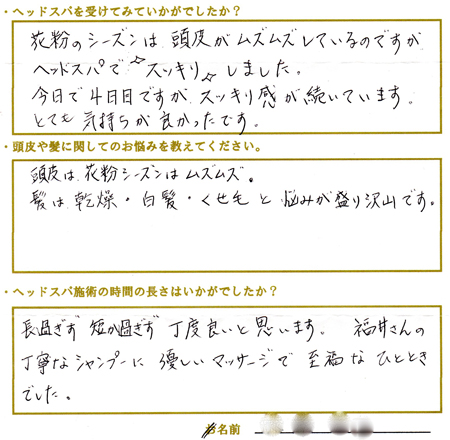 ・ヘッドスパを受けてみていかがでしたか？
花粉のシーズンは頭皮がムズムズしているのですが
ヘッドスパで☆スッキリ☆しました。
今日で4日目ですが スッキリ感が続いています。
とても気持ちが良かったです。
・頭皮や髪に関してのお悩みを教えてください。
頭皮は花粉シーズンはムズムズ。
髪は乾燥・白髪・くせ毛と悩みが盛り沢山です。
・ヘッドスパ施術の時間の長さはいかがでしたか？
長過ぎず 短か過ぎず 丁度良いと思います。 福井さんの
丁寧なシャンプーに 優しいマッサージで 至福なひととき
でした。
お名前